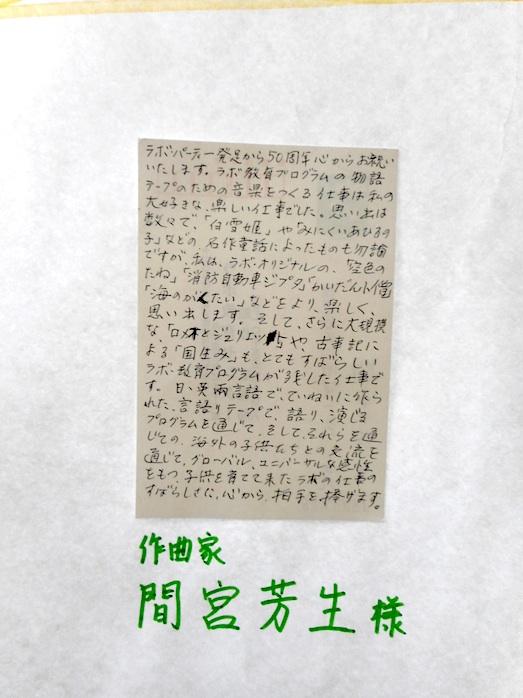 ラボ・パーティー発足から50周年心からお祝い
いたします。ラボ教育プログラムの物語
テープのための音楽をつくる仕事は私の
大好きな、楽しい仕事でした。思い出は
数々で、「白雪姫」や「みにくいあひるの
子」などの、名作童話によったものも勿論
ですが、私は、ラボ・オリジナルの、「空色の
たね」「消防自動車ジプタ」「かいだんこ僧」
「海のがくたい」などをより、楽しく、
思い出します。そして、さらに大規模
な、「ロメオとジュリエット」や、古事記に
よる「国生み」も、とてもすばらしい
ラボ・教育プログラムが残した仕事で
す。日・英両言語で、ていねいに作ら
れた、言語りテープで、語り、演じる
プログラムを通じて、そして、それらを通
じての、海外の子供たちとの交流を
通じて、グローバル、ユニバーサルな感性
をもつ、子供を育てて来たラボの仕事の
すばらしさに、心から、拍手を捧げます。
作曲家
間宮芳生様